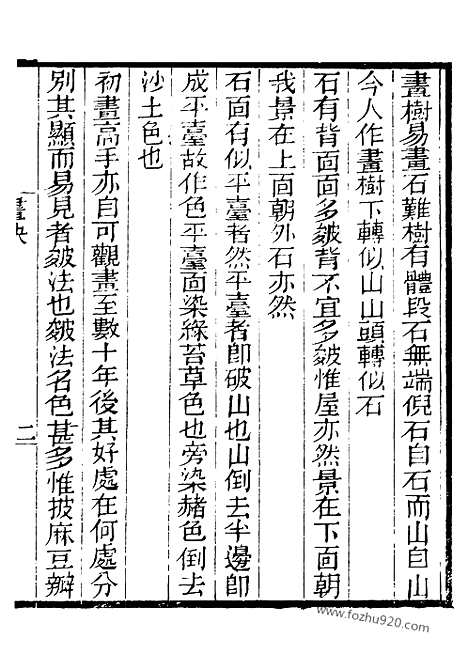 畫樹易畫石難樹有體段石無端倪石自石而山自山
今人作畫樹下轉似山山頭轉似石
石有背面面多皴背不宜多皴惟屋亦然景在下面朝
我景在上面朝外石亦然
石面有似平臺者然平臺者卽破山也山倒去半邊卽
成平臺故作色平臺面染綠苔草色也旁染赭色倒去
沙土色也
初畫高手亦自可觀畫至數十年後其好處在何處分
別其顯而易見者皴法也皴法名色甚多惟披麻豆瓣
畫決
二
www.fozhu920.com